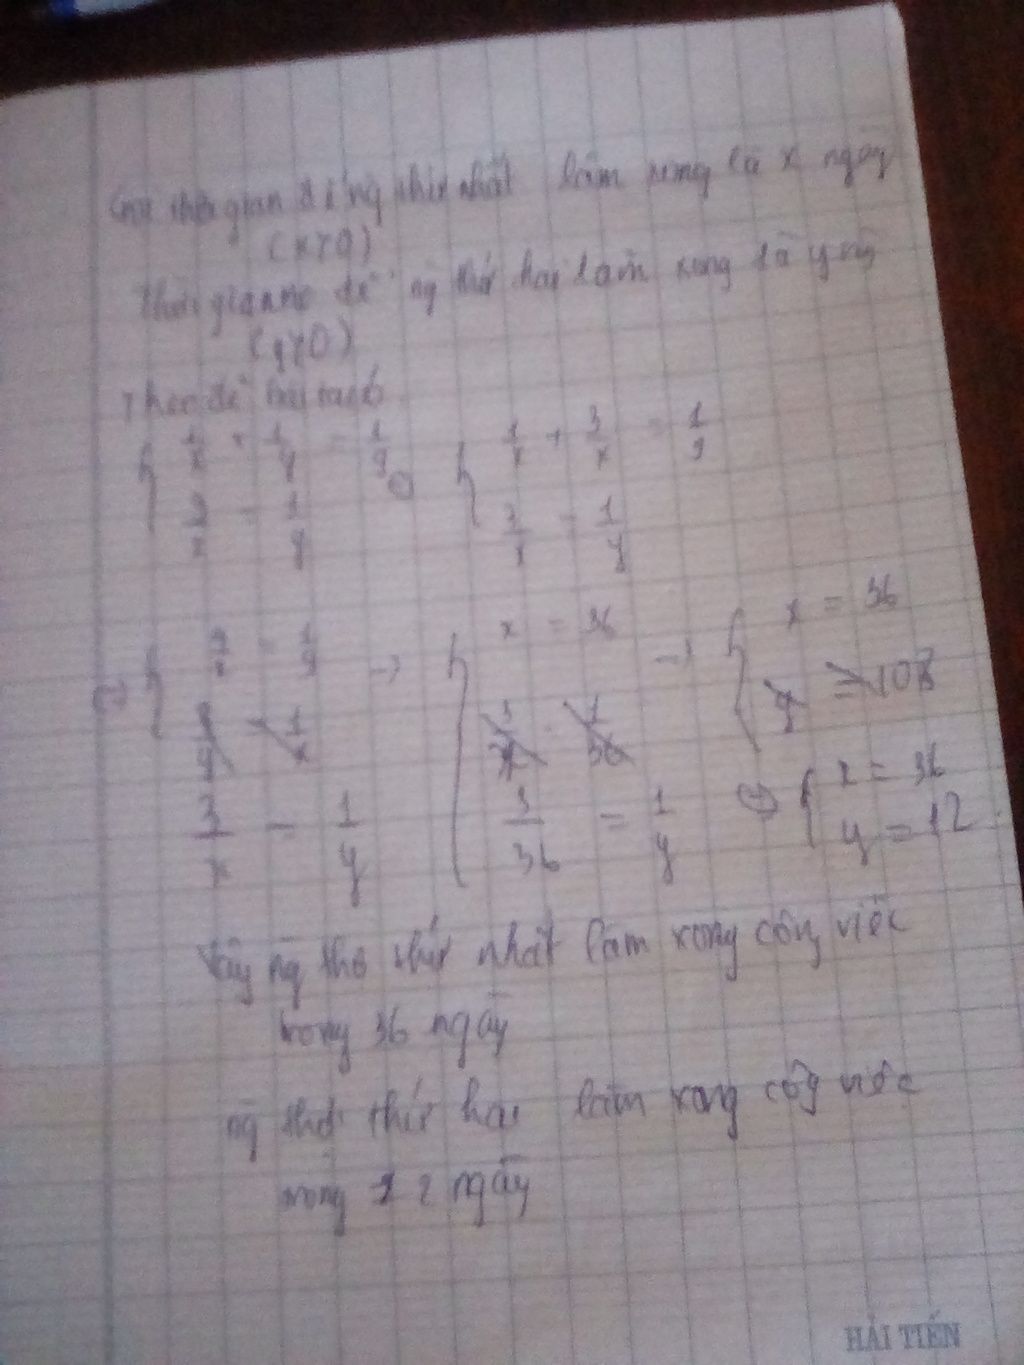 Gọi thời gian để ng thứ nhất làm xong là x ngày
(x>0)
Thời gian để ng thứ hai làm xong là y ng
(y>0)
Theo đề bài ta có
{ 1/x + 1/y = 1/9 ⇔ { 1/x + 3/x = 1/9
3/x = 1/y 3/x = 1/y
⇔ { 4/x = 1/9 → { x = 36 → { x = 36
3/x = 1/y 3/36 = 1/y ⇔ { x = 36
y = 12
Vậy ng thợ thứ nhất làm xong công việc
trong 36 ngày
ng thợ thứ hai làm xong công việc
trong 12 ngày
HẢI TIẾN